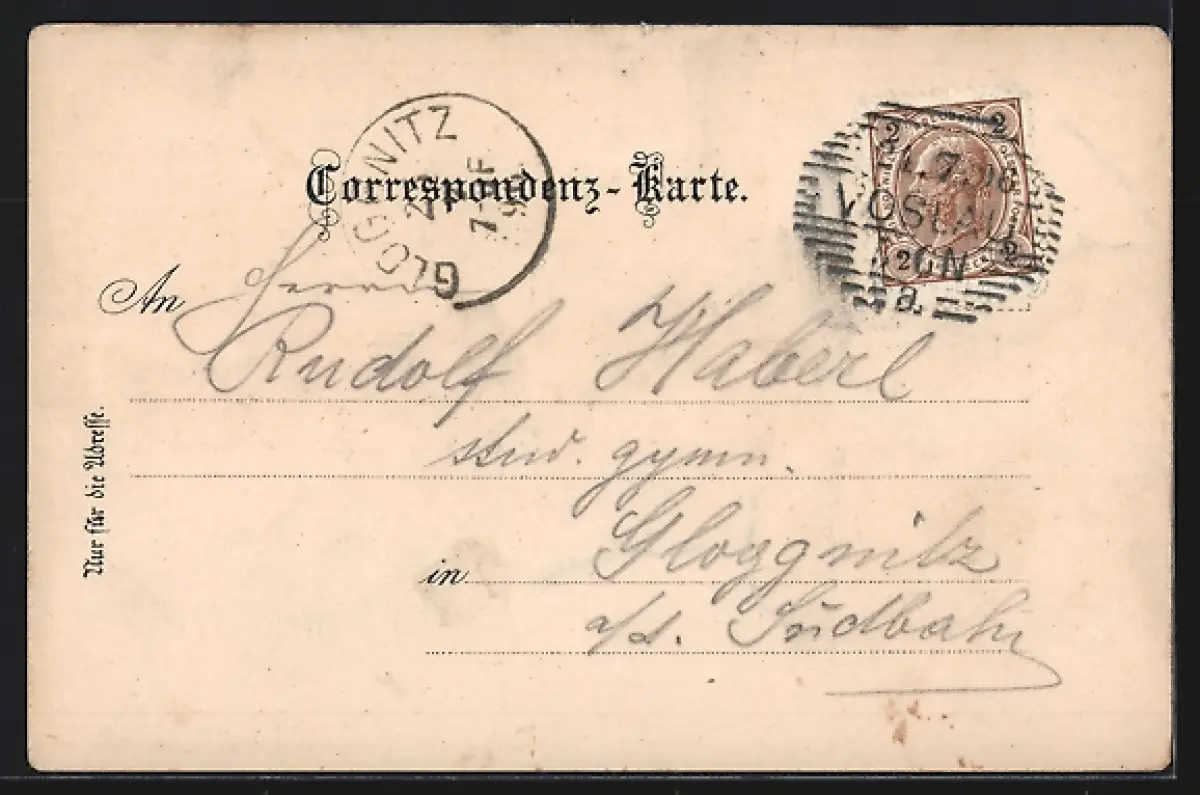 GLOGGNITZ
7-F
Correspondenz-Karte.
2 2
7
VÖSLAU
2 2
a.
An Herrn
Rudolf Haberl
stud. gymn.
in Gloggnitz
a/d. Südbahn
Nur für die Adresse.